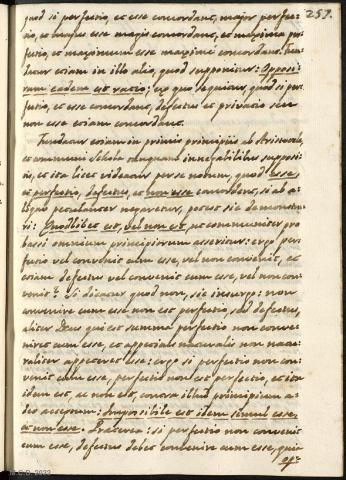 257.
quod si perfectio, et esse concordant, major perfec-
tio, et magis esse magis concordant, et maxima per-
fectio, et maximum esse maximè concordant. Fun-
datur etiam in illo alio, quod supponitur: Opposi-
torum eadem est ratio; ex quo sequitur, quod si per-
fectio, et esse concordant, defectus et privatio seu
non esse etiam concordant.
Fundatur etiam in primis principiis ab Aristotele,
et communi schola tanquam innegabilibus supposi-
tis, et ita licet videatur per se notum, quod esse,
et perfectio, defectus, et non esse concordent, si ab a-
liquo petulanter negaretur, potest sic demonstra-
ri: Quodlibet est, vel non est, ut communiter pro
basi omnium principiorum asseritur: ergo per-
fectio vel convenit cum esse, vel non convenit, et
etiam defectus vel convenit cum esse, vel non con-
venit? Si dicatur quod non, sic insurgo: non
convenire cum esse non est perfectio, sed defectus,
aliter Deus qui est summa perfectio non conve-
niret cum esse, et appetitus naturalis non natu-
raliter appeteret esse: ergo si perfectio non con-
venit cum esse, perfectio non est perfectio, et ita
idem est, et non est, contra illud principium a-
deo acceptum: Impossibile est idem simul esse,
et non esse. Praeterea: si perfectio non convenit
cum esse, defectus debet convenire cum esse, quia